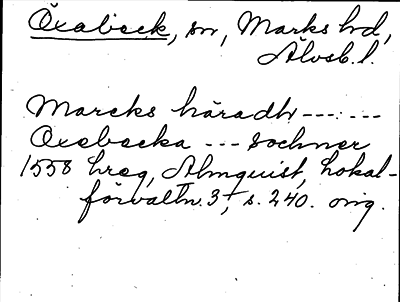 Öxabäck, sn, Marks hd,
Älvsb. l.
Marcks häradh --- : ---
Oxebacka --- sochner
1558 hreg, Almquist, Lokal-
förvaltn. 3:1, s. 240. orig.